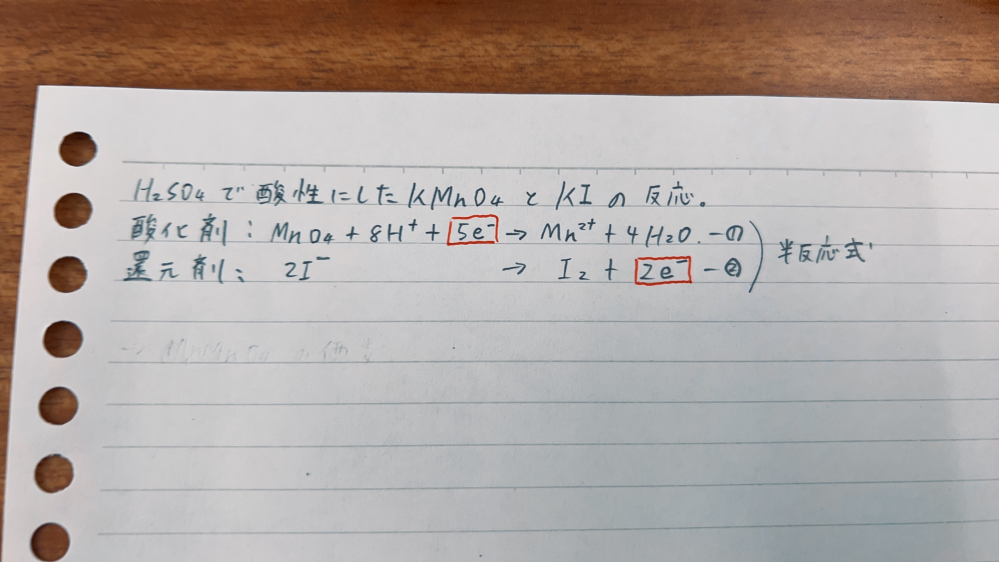 H₂SO₄で酸性にしたKMnO₄とKIの反応。
酸化剤：MnO₄ + 8H⁺ + 5e⁻ → Mn²⁺ + 4H₂O. -①
還元剤： 2I⁻ → I₂ + 2e⁻ -②
半反応式